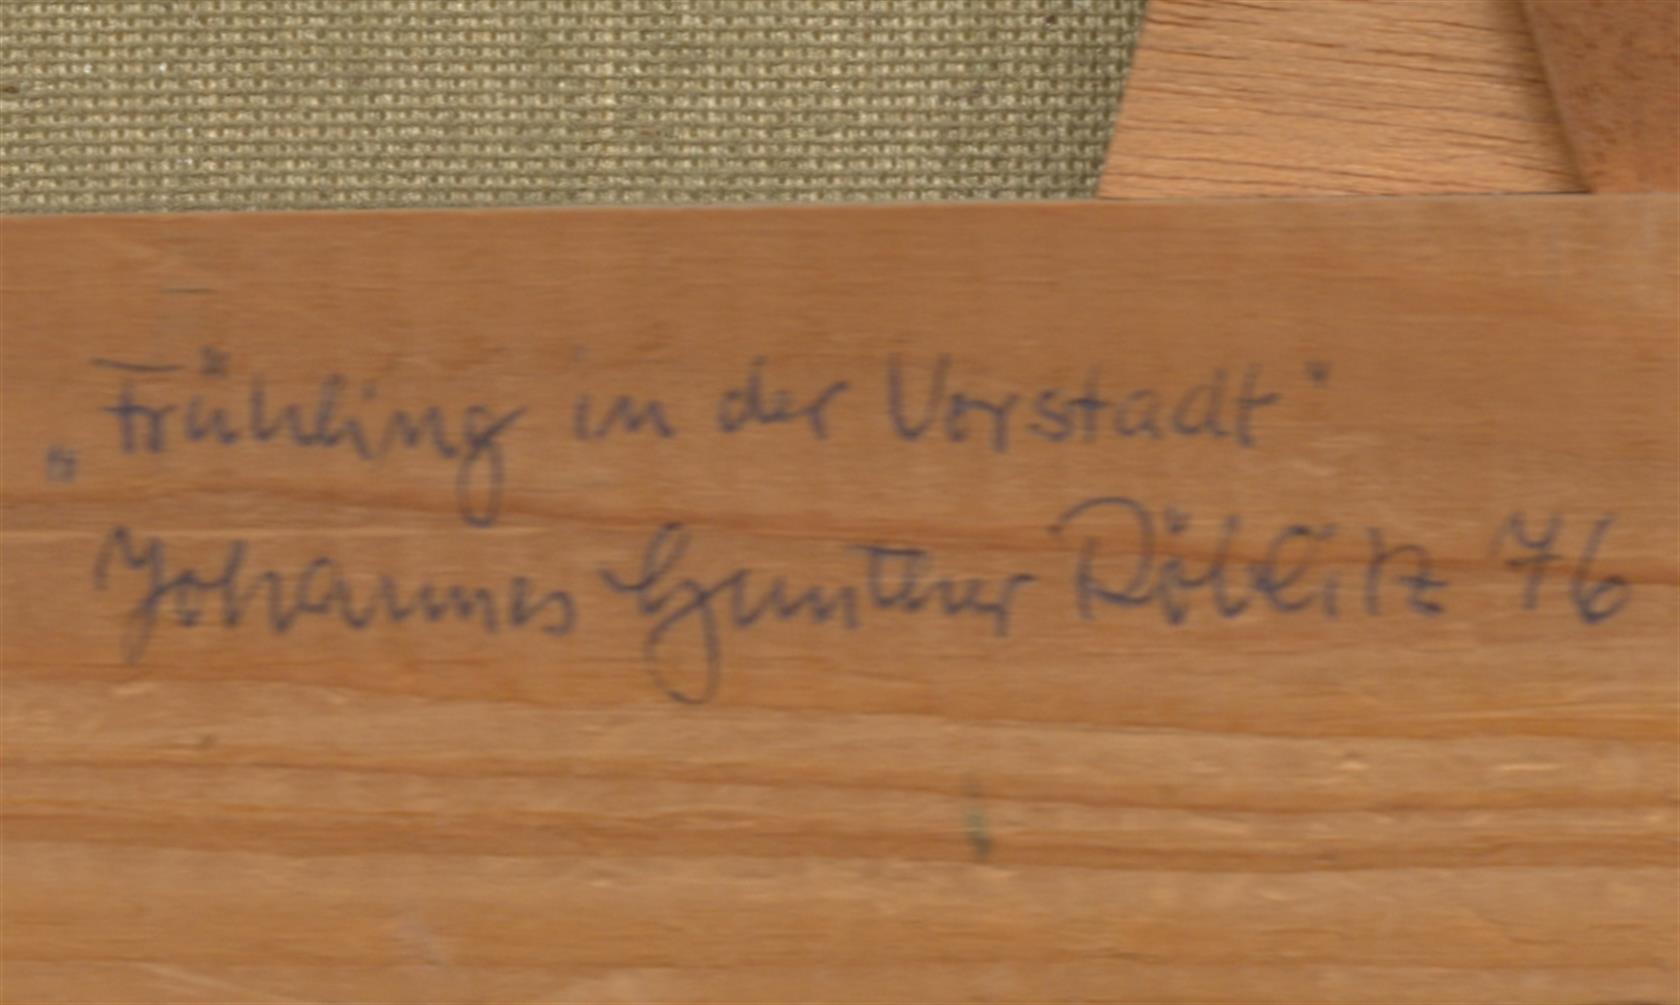 „Frühling in der Vorstadt"
Johannes Gunther Röblitz 76